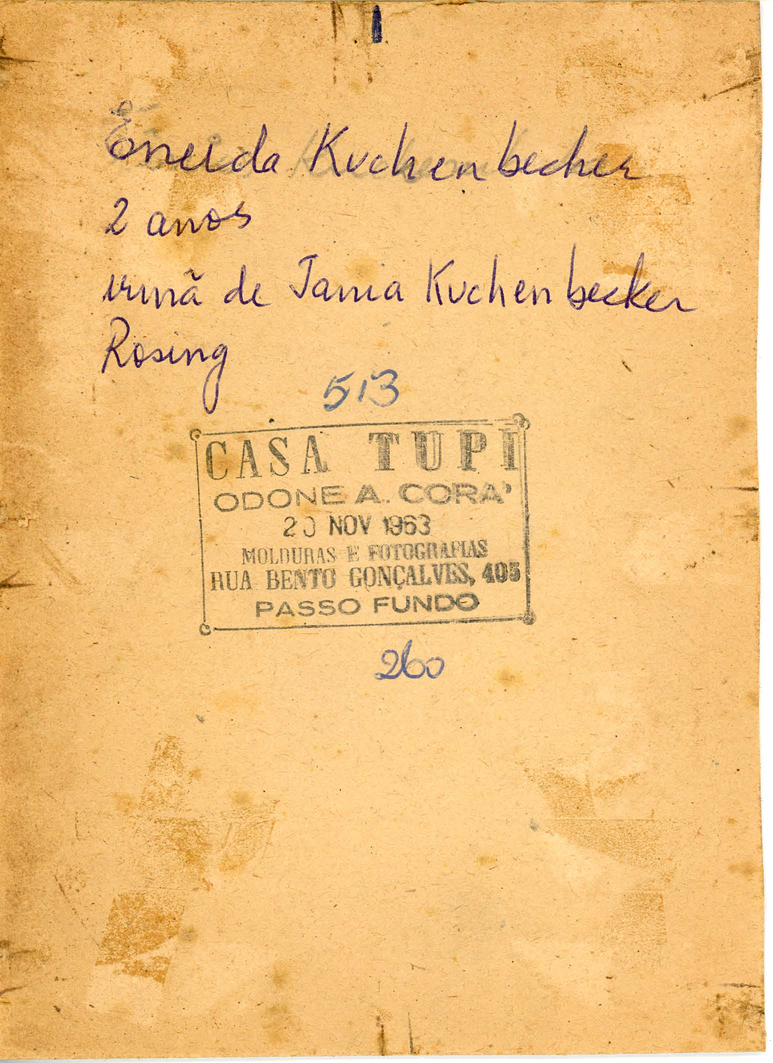 Eneida Kuchenbecker
2 anos
irmã de Tania Kuchenbecker
Rosing
513
CASA TUPI
ODONE A. CORA'
20 NOV 1963
MOLDURAS E FOTOGRAFIAS
RUA BENTO GONÇALVES, 405
PASSO FUNDO
260